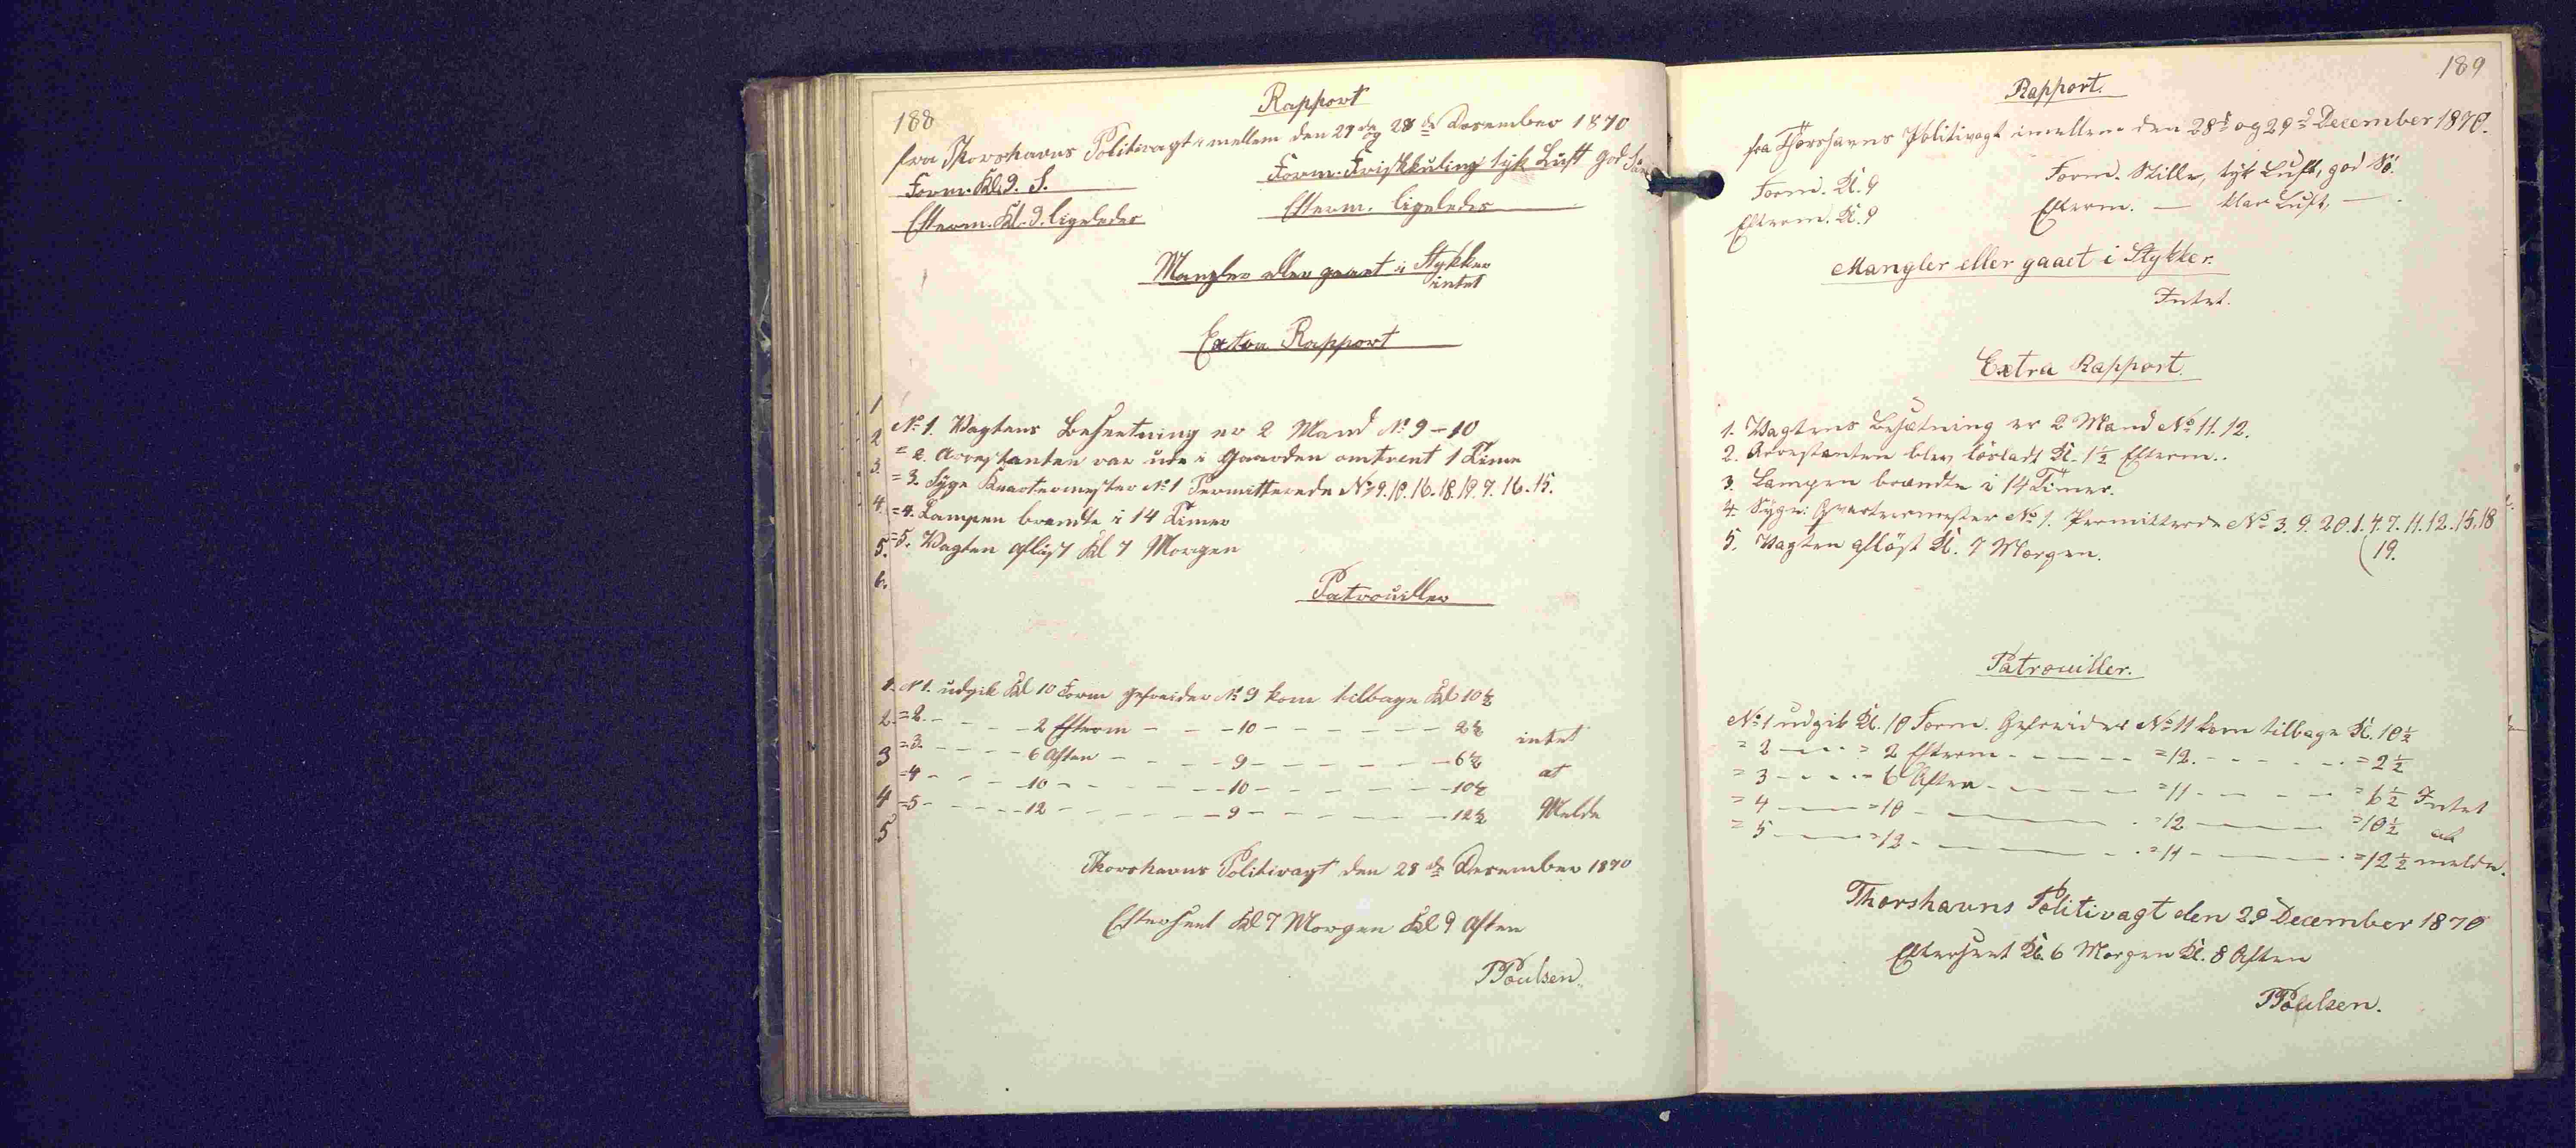 188
Rapport
fra Thorshavns Politivagt imellem den 27de og 28de Desember 1870
Form. Kl. 9. S. Form. Friskkuling tyk Luft god Sö
Efterm. Kl. 9. ligeledes Efterm. ligeledes
Mangler eller gaaet i Stykker
intet
Extra Rapport
1
2
3.
4.
5.
6.
No 1. Vagtens Besætning er 2 Mand No 9-10
= 2. Arrestanten var ude i Gaarden omtrent 1 Time
= 3. Syge Kvartermester No 1 Permitterede No 9.10.16.18.19.7.16.15.
= 4. Lampen brendte i 14 Timer
= 5. Vagten aflöst Kl 7 Morgen
Patrouiller
1. No 1. udgik Kl 10 Form gefreider No 9 kom tilbage Kl 10½
2. = 2. - - - - 2 Efterm - - - 10 - - - - - - 2½ intet
3 = 3. - - - - 6 Aften - - - - 9 - - - - - - 6½ at
4 = 4 - - - - 10 - - - - - - 10 - - - - - - 10½ Melde
5 = 5 - - - - 12 - - - - - - 9 - - - - - - 12½
Thorshavns Politivagt den 28de Desember 1870
Efterseet Kl 7 Morgen Kl 9 Aften
PPoulsen.
189
Rapport.
fra Thorshavns Politivagt imellem den 28de og 29de December 1870.
Form. Kl. 9 Form. Stille, tyk Luft, god Sö.
Efterm. Kl. 9 Efterm. — klar Luft, — .
Mangler eller gaaet i Stykker.
Intet.
Extra Rapport.
1. Vagtens Besætning er 2 Mand No 11. 12.
2. Arrestanten blev lösladt Kl. 1½ Efterm..
3. Lampen brændte i 14 Timer.
4. Syge: Qvartermester No 1. Permitterede No 3. 9. 20. 1. 4. 7. 11. 12. 15. 18
(19.
5. Vagten aflöst Kl. 7 Morgen.
Patrouiller.
No 1 udgik Kl. 10 Form. Gefreider No 11 kom tilbage Kl. 10½
= 2 - - - = 2 Efterm. - - - - = 12. - - - - - = 2½
= 3 - - - = 6 Aften - - - - = 11 - - - - - = 6½ Intet
= 4 - - - = 10 - - - - = 12 - - - - = 10½ at
= 5 - - - = 12 - - - - = 11 - - - - = 12½ melde.
Thorshavns Politivagt den 29 December 1870
Efterseet Kl. 6 Morgen Kl. 8 Aften
PPoulsen.